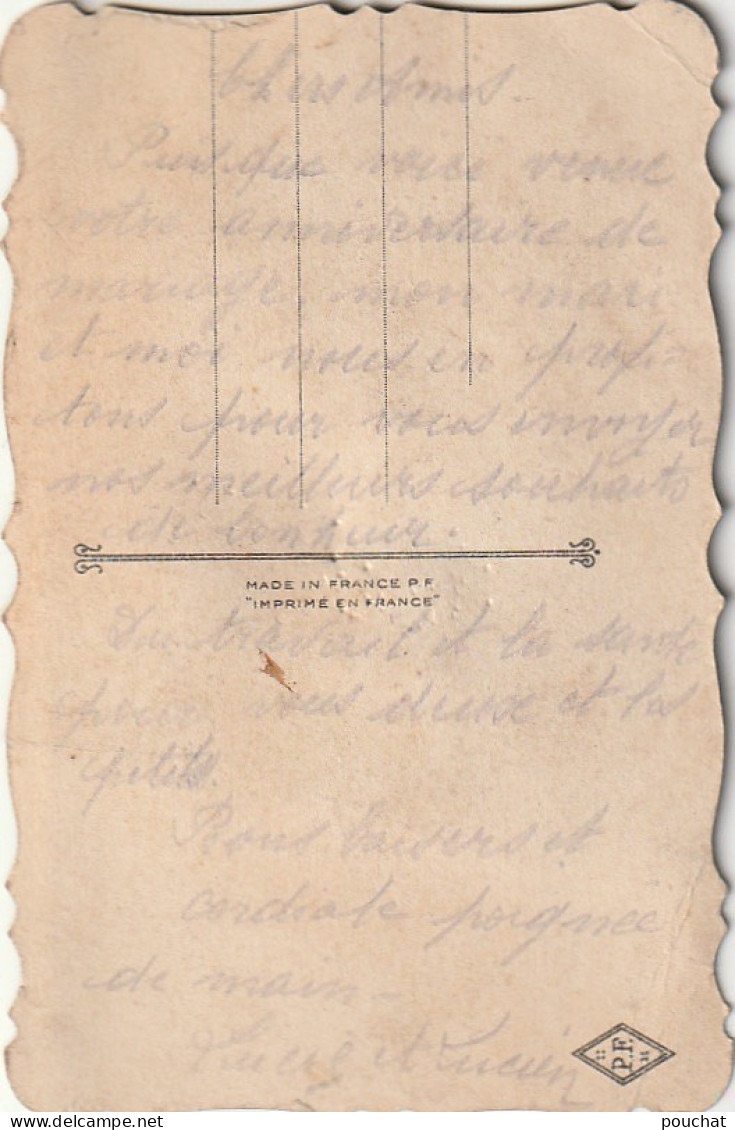 Chers Amis.
Puisque voici venue
votre anniversaire de
mariage, mon mari
et moi nous en profi=
tons pour vous envoyer
nos meilleurs souhaits
de bonheur.
MADE IN FRANCE P.F.
"IMPRIMÉ EN FRANCE"
Du travail et la santé
pour vous deux et les
petits.
Bons baisers et
cordiale poignée
de main -
et Lucien
P.F.
delcampe.net
pouchat